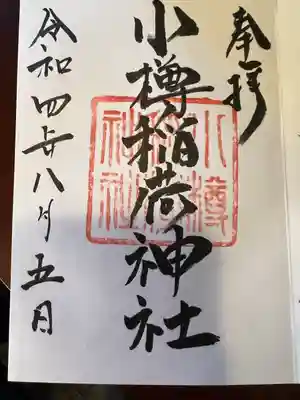 奉拝
小樽稲荷神社
小樽稲荷神社
令和四年八月五日